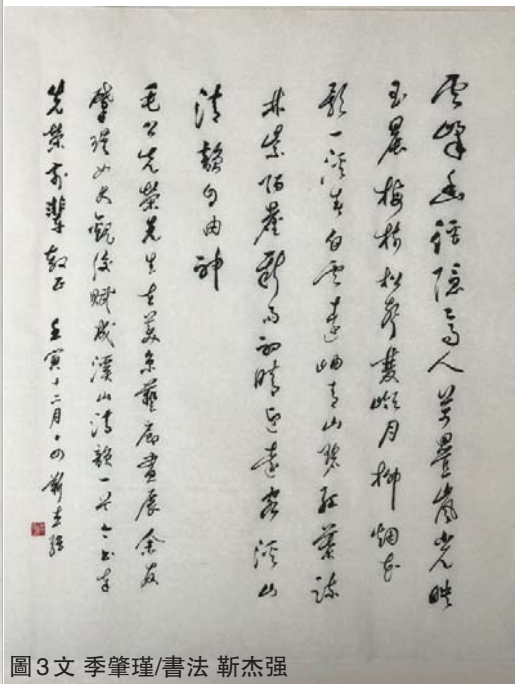 雲峰幽徑隱高人萬疊嵐光映
玉晨梅樹松聲雙嶼月柳烟花
影一溪春白雲遠岫青山碧紅葉疏
林紫陌塵新雨初晴迎遠客溪山
清韻自由神
毛公先榮先生在美京藝廊畫展余友
肇瑾女史觀後賦成溪山清韻一首今書奉
先榮前輩教正 壬寅十二月十四 靳杰强
圖3文 季肇瑾/書法 靳杰强